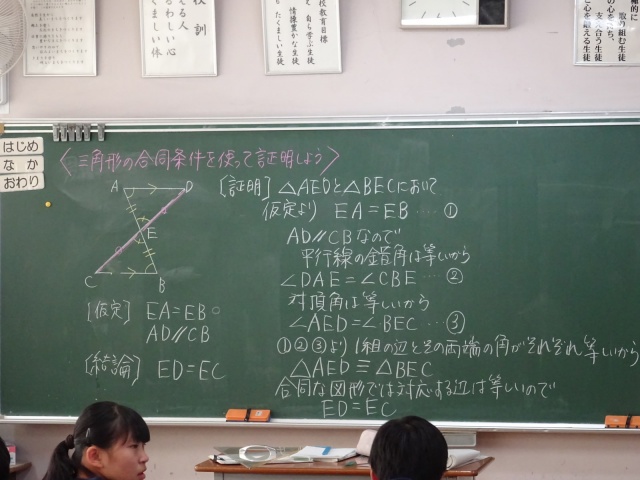 校訓
える人
るわしい心
くましい体
校教育目標
て 自ら学ぶ生徒
情操豊かな生徒
たくましい生徒
取り組む生徒
支え合う生徒
の心を持ち、
心を鍛える生徒
はじめ
なか
おわり
〈三角形の合同条件を使って証明しよう〉
A D
E
C B
[仮定] EA=EB
AD//CB
[結論] ED=EC
[証明] △AEDと△BECにおいて
仮定より EA=EB … ①
AD//CBなので
平行線の錯角は等しいから
∠DAE=∠CBE … ②
対頂角は等しいから
∠AED=∠BEC … ③
①②③より 1組の辺とその両端の角がそれぞれ等しいから
△AED≡△BEC
合同な図形では対応する辺は等しいので
ED=EC